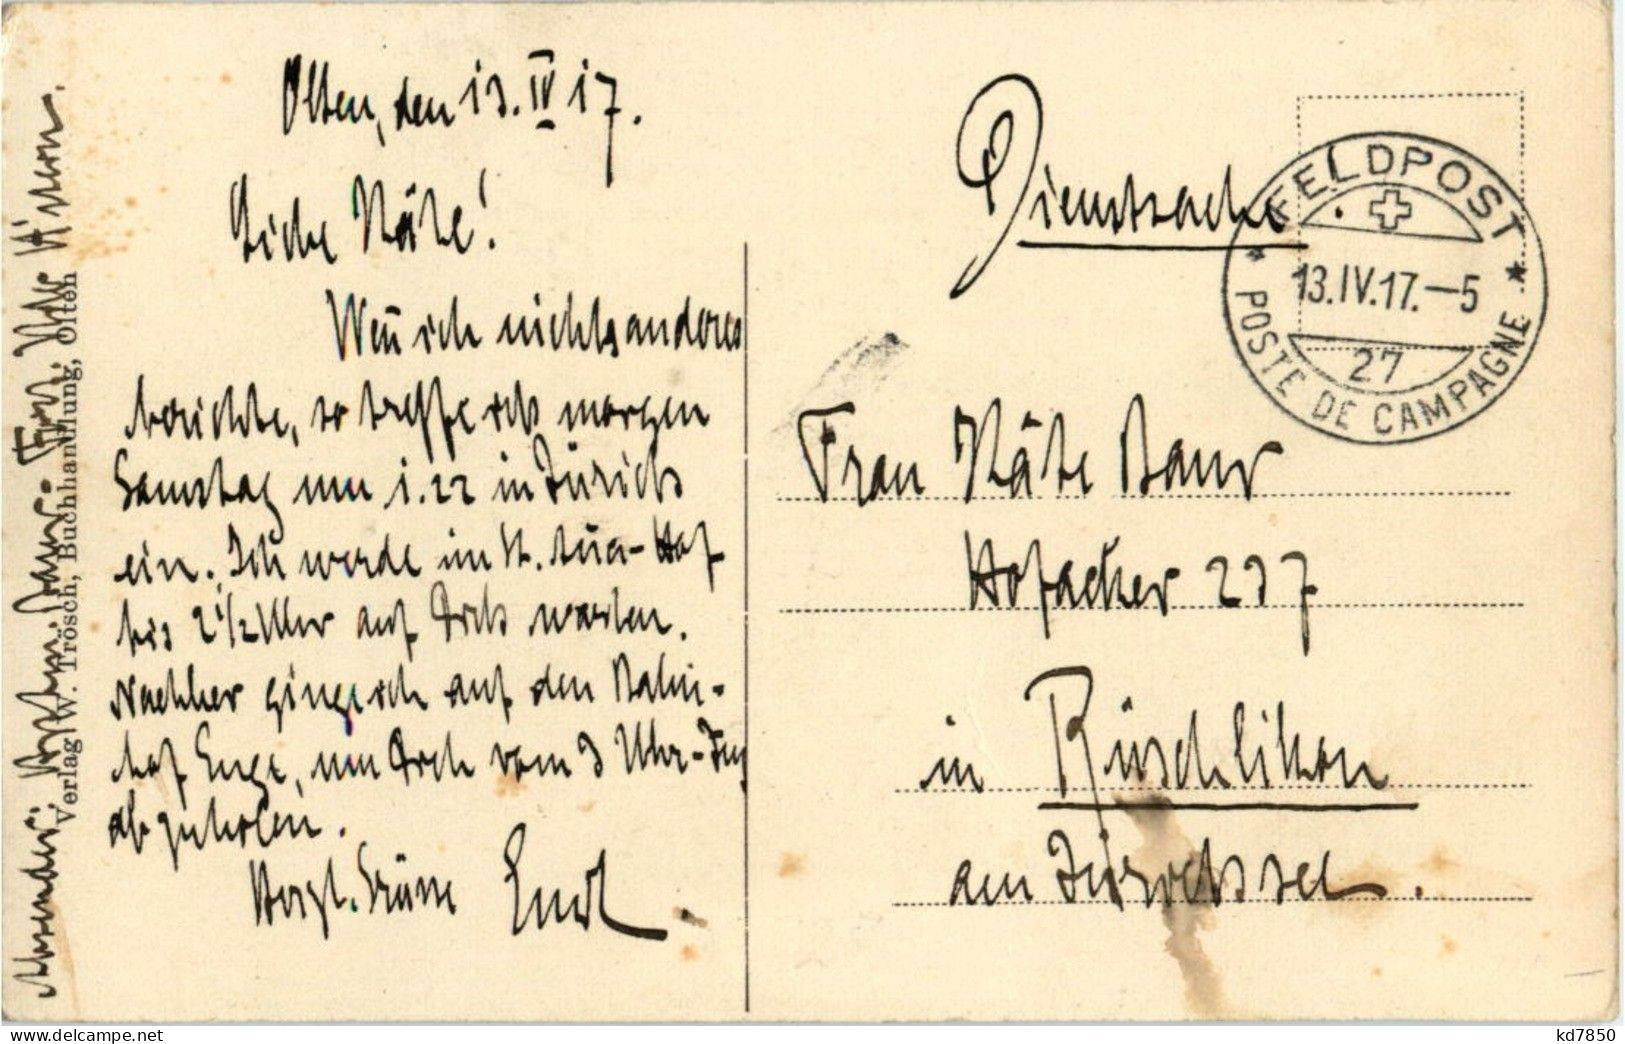 Olten, den 13. IV 17.
Liebe Käte!
Wen̄ ich nichts anderes
berichte, so treffe ich morgen
Samstag um 1.22 in Zürich
ein. Ich werde im St. Hof
bis 2 1/2 Uhr auf Dich warten.
Nachher ginge ich auf den Bahn-
hof Enge, um Dich vom 3 Uhr-Zug
abzuholen.
Herzl. Grüsse Emil
Absender:
Verlag W. Trösch, Buchhandlung, Olten
Dienstsache
FELDPOST
13.IV.17.—5
27
POSTE DE CAMPAGNE
Frau Käte Baur
Hofacker 237
in Rüschlikon
am Zürichsee.
kd7850